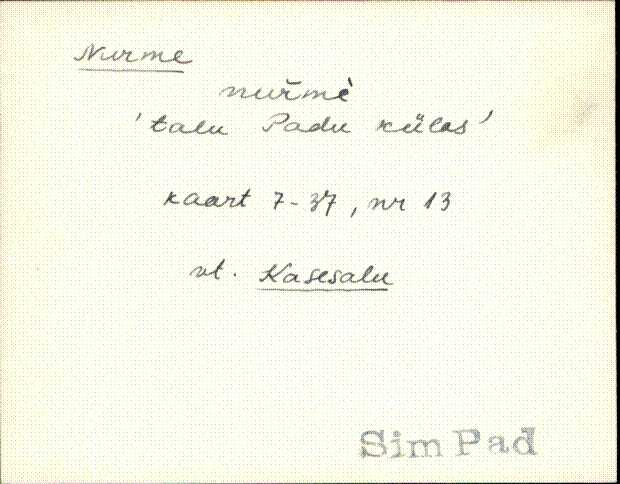 Nurme
nuřmè
'talu Padu külas'
kaart 7-37, nr 13
vt. Kasesalu
Sim Pad